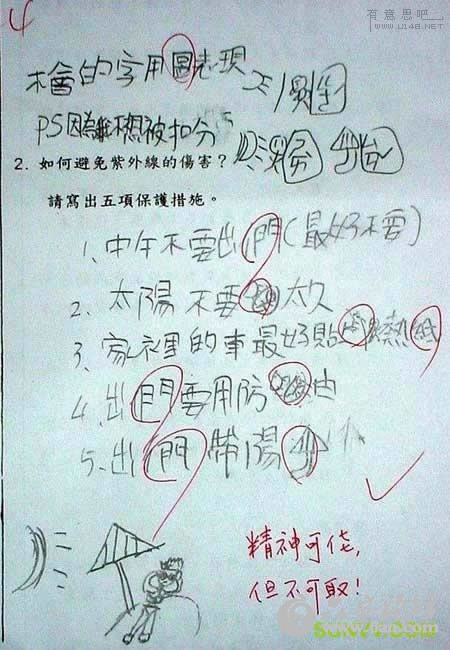 有意思吧
www.U148.NET
4
不會的字用圖表現
PS因為誰不想被扣分
2. 如何避免紫外線的傷害?
請寫出五項保護措施。
1、中午不要出門(最好不要)
2、太陽不要 太久
3、家裡的車最好貼 熱紙
4、出門要用防 油
5、出門帶陽傘
精神可佳,
但不可取!